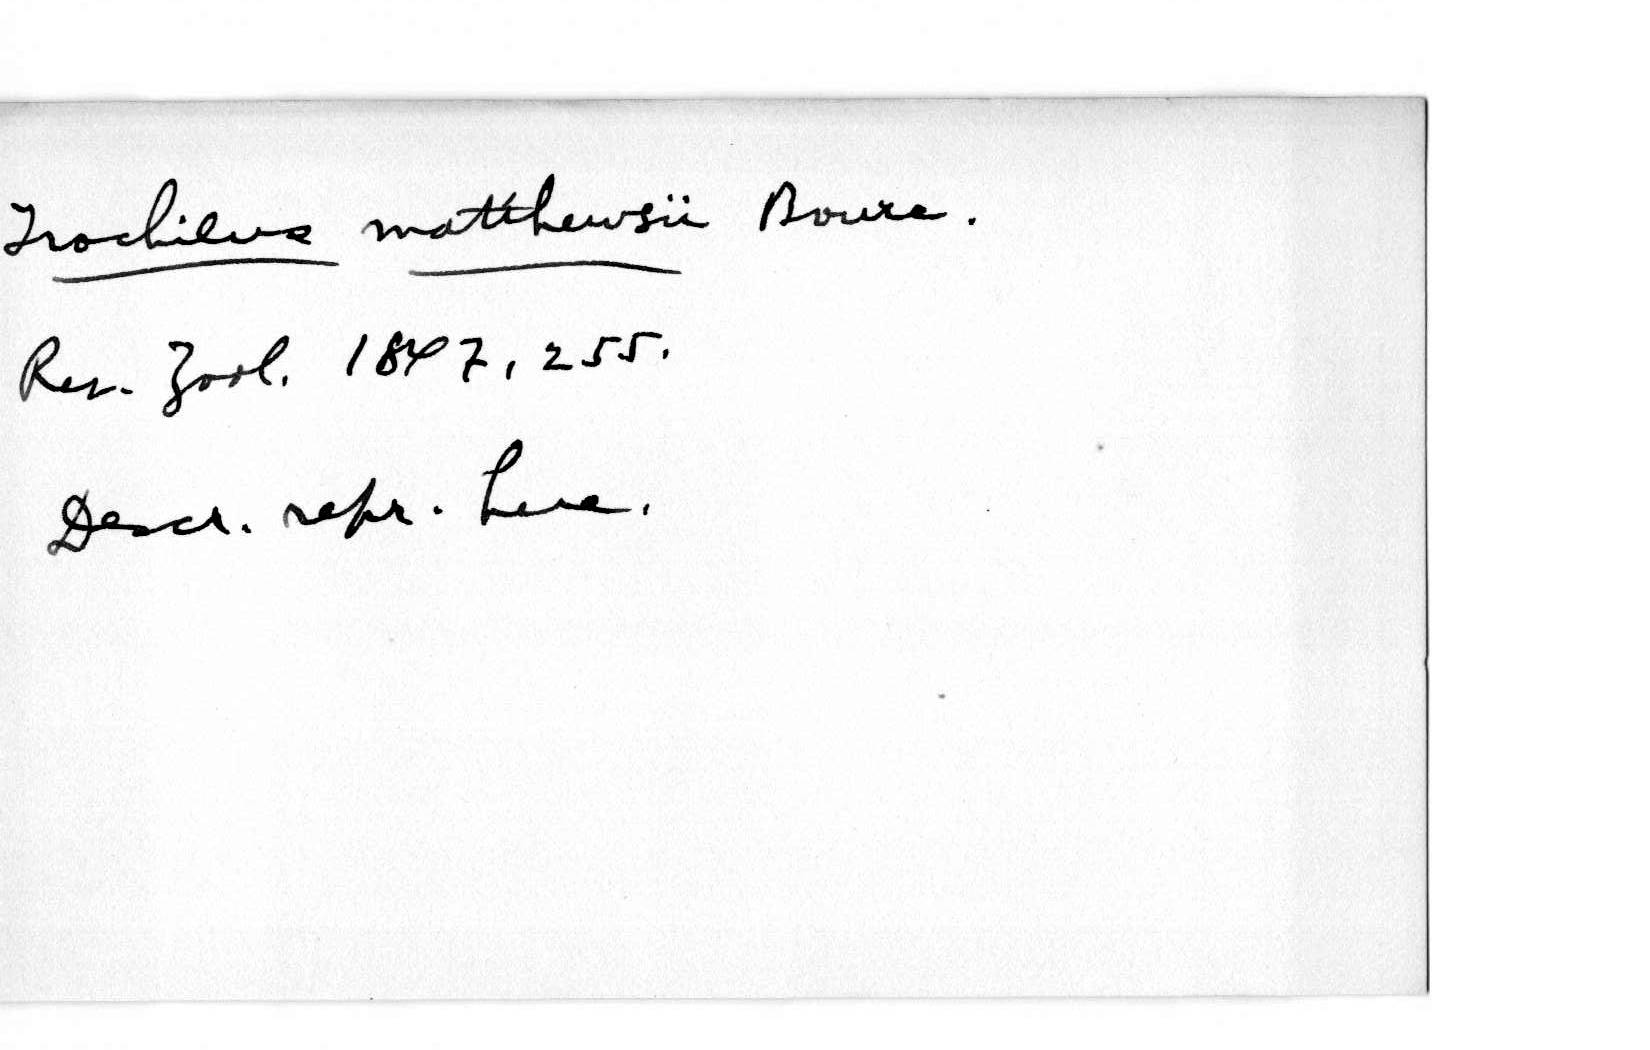 Trochilus matthewsii Bourc.
Rev. Zool. 1847, 255.
Descr. repr. here.